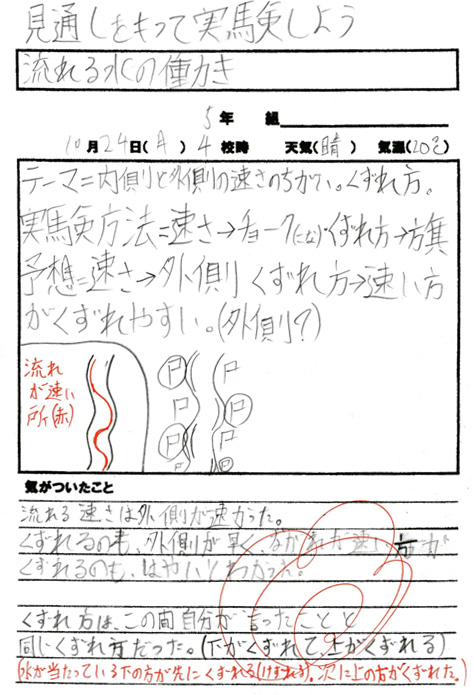 見通しをもって実験しよう
流れる水の働き
5年 組
10月24日(月) 4校時 天気(晴) 気温(20℃)
テーマ=内側と外側の速さのちがい。くずれ方。
実験方法=速さ→チョーク(こな) くずれ方→方旗
予想=速さ→外側 くずれ方→速い方
がくずれやすい。(外側?)
流れ
が速い
所(赤)
気がついたこと
流れる速さは外側が速かった。
くずれるのも、外側が早く、な 速い方が
くずれるのも、はやいとわかった。
くずれ方は、この間自分が言ったことと
同じくずれ方だった。(下がくずれて、上がくずれる)
(水が当たっている下の方が先にくずれる(けずれる)。次に上の方がくずれた。)